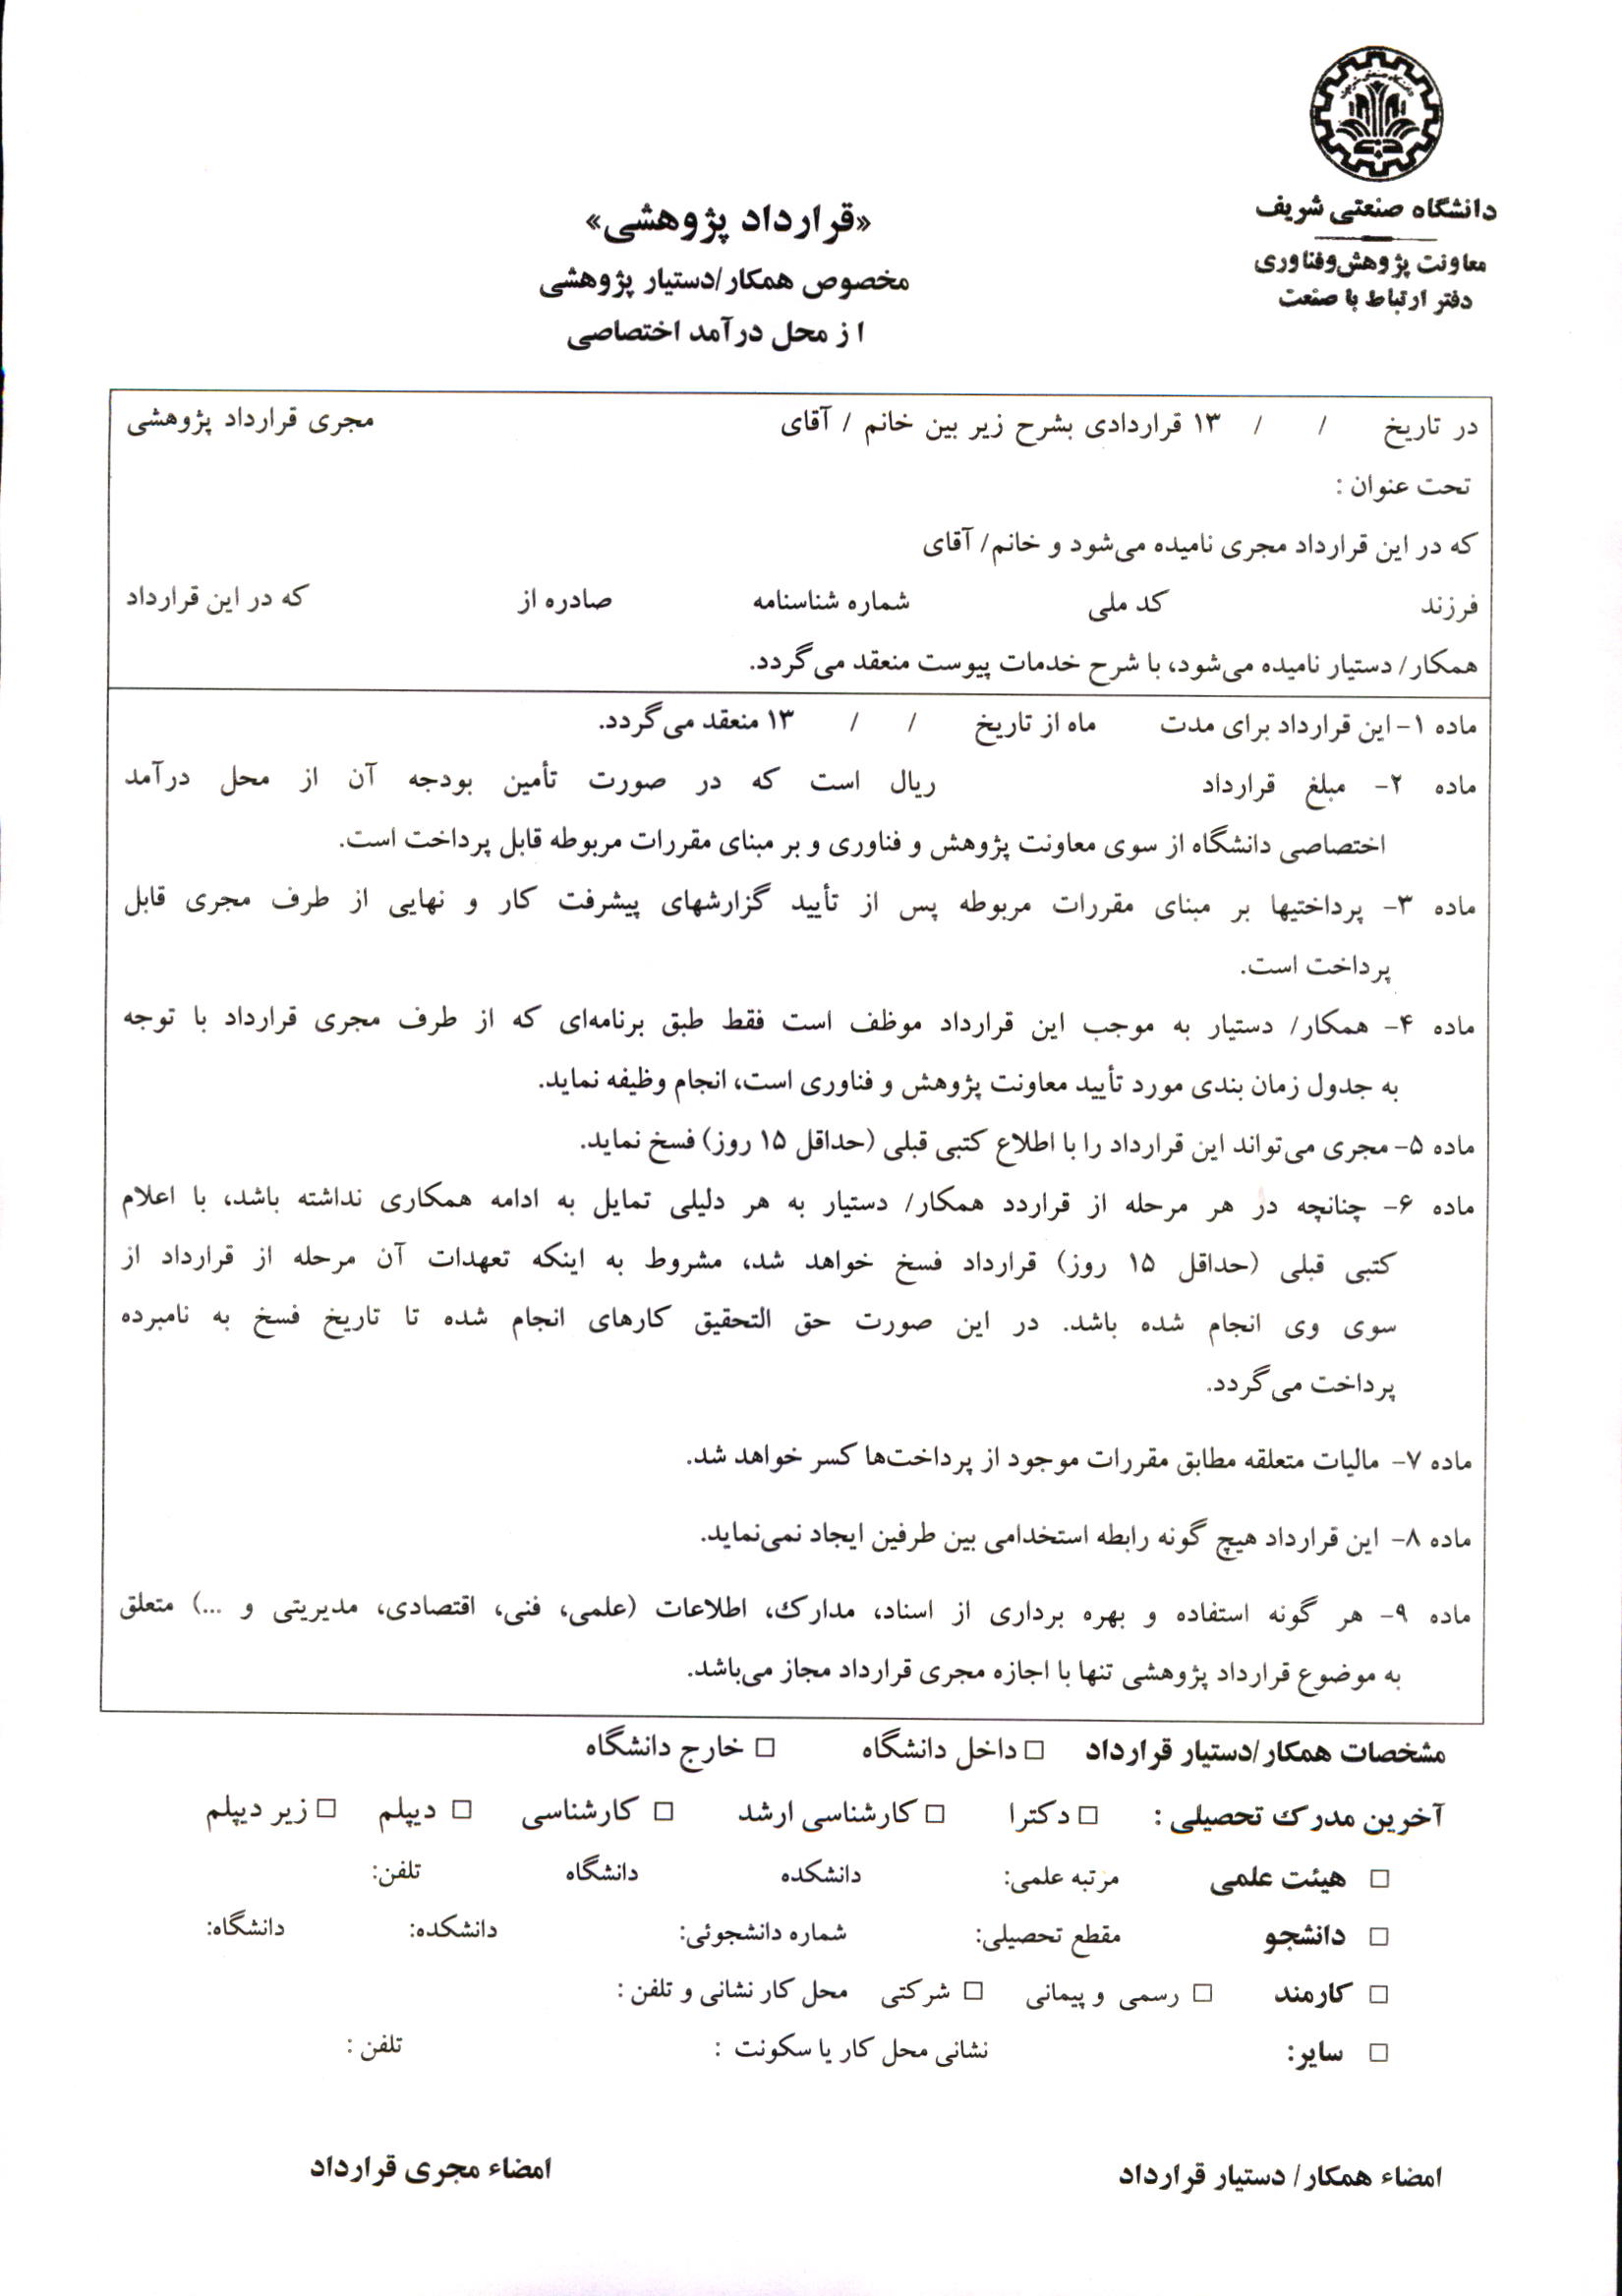 دانشگاه صنعتی شریف
معاونت پژوهش‌وفناوری
دفتر ارتباط با صنعت
«قرارداد پژوهشی»
مخصوص همکار/دستیار پژوهشی
از محل درآمد اختصاصی
در تاریخ / / ۱۳ قراردادی بشرح زیر بین خانم / آقای مجری قرارداد پژوهشی
تحت عنوان :
که در این قرارداد مجری نامیده می‌شود و خانم/ آقای
فرزند کد ملی شماره شناسنامه صادره از که در این قرارداد
همکار/ دستیار نامیده می‌شود، با شرح خدمات پیوست منعقد می‌گردد.
ماده ۱- این قرارداد برای مدت ماه از تاریخ / / ۱۳ منعقد می‌گردد.
ماده ۲- مبلغ قرارداد ریال است که در صورت تأمین بودجه آن از محل درآمد
اختصاصی دانشگاه از سوی معاونت پژوهش و فناوری و بر مبنای مقررات مربوطه قابل پرداخت است.
ماده ۳- پرداختیها بر مبنای مقررات مربوطه پس از تأیید گزارشهای پیشرفت کار و نهایی از طرف مجری قابل
پرداخت است.
ماده ۴- همکار/ دستیار به موجب این قرارداد موظف است فقط طبق برنامه‌ای که از طرف مجری قرارداد با توجه
به جدول زمان بندی مورد تأیید معاونت پژوهش و فناوری است، انجام وظیفه نماید.
ماده ۵- مجری می‌تواند این قرارداد را با اطلاع کتبی قبلی (حداقل ۱۵ روز) فسخ نماید.
ماده ۶- چنانچه در هر مرحله از قراردد همکار/ دستیار به هر دلیلی تمایل به ادامه همکاری نداشته باشد، با اعلام
کتبی قبلی (حداقل ۱۵ روز) قرارداد فسخ خواهد شد، مشروط به اینکه تعهدات آن مرحله از قرارداد از
سوی وی انجام شده باشد. در این صورت حق التحقیق کارهای انجام شده تا تاریخ فسخ به نامبرده
پرداخت می‌گردد.
ماده ۷- مالیات متعلقه مطابق مقررات موجود از پرداخت‌ها کسر خواهد شد.
ماده ۸- این قرارداد هیچ گونه رابطه استخدامی بین طرفین ایجاد نمی‌نماید.
ماده ۹- هر گونه استفاده و بهره برداری از اسناد، مدارک، اطلاعات (علمی، فنی، اقتصادی، مدیریتی و ...) متعلق
به موضوع قرارداد پژوهشی تنها با اجازه مجری قرارداد مجاز می‌باشد.
مشخصات همکار/دستیار قرارداد □ داخل دانشگاه □ خارج دانشگاه
آخرین مدرک تحصیلی : □ دکترا □ کارشناسی ارشد □ کارشناسی □ دیپلم □ زیر دیپلم
□ هیئت علمی مرتبه علمی: دانشکده دانشگاه تلفن:
□ دانشجو مقطع تحصیلی: شماره دانشجوئی: دانشکده: دانشگاه:
□ کارمند □ رسمی و پیمانی □ شرکتی محل کار نشانی و تلفن :
□ سایر: نشانی محل کار یا سکونت : تلفن :
امضاء همکار/ دستیار قرارداد امضاء مجری قرارداد